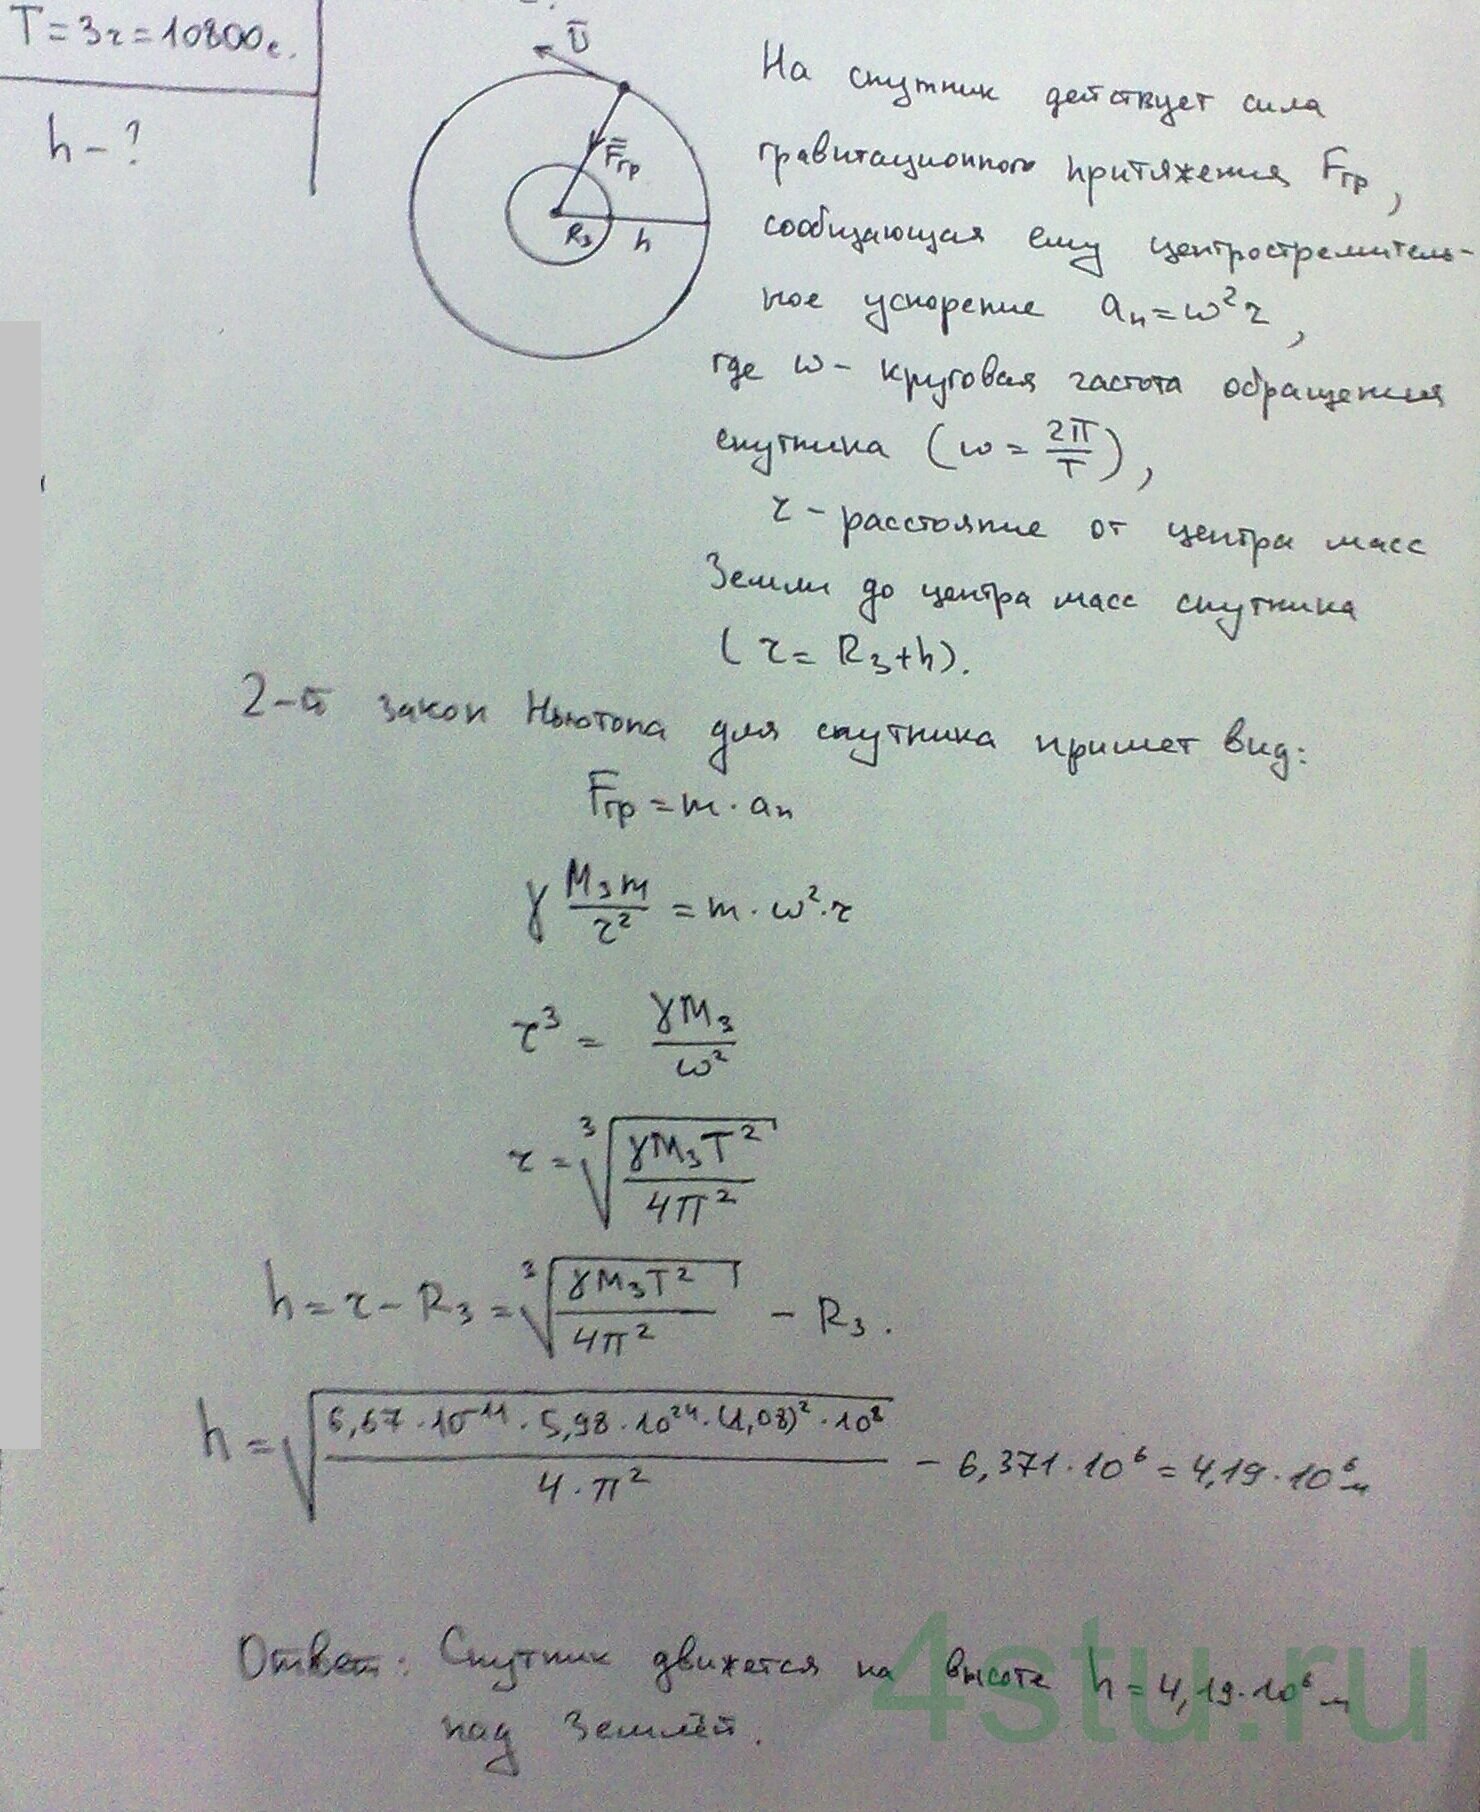 T = 3ч = 10800с.
h - ?
υ
Fгр
Rз h
На спутник действует сила
гравитационного притяжения Fгр,
сообщающая ему центростремитель-
ное ускорение aп = ω²r,
где ω - круговая частота обращения
спутника (ω = 2π/T),
r - расстояние от центра масс
Земли до центра масс спутника
(r = Rз + h).
2-й закон Ньютона для спутника примет вид:
Fгр = m · aп
γ Mз m / r² = m · ω² · r
r³ = γMз / ω²
r = ³√(γMзT² / 4π²)
h = r - Rз = ³√(γMзT² / 4π²) - Rз.
h = √(6,67 · 10⁻¹¹ · 5,98 · 10²⁴ · (1,08)² · 10⁸ / 4 · π²) - 6,371 · 10⁶ = 4,19 · 10⁶ м
Ответ: Спутник движется на высоте h = 4,19 · 10⁶ м
над Землёй.
4stu.ru